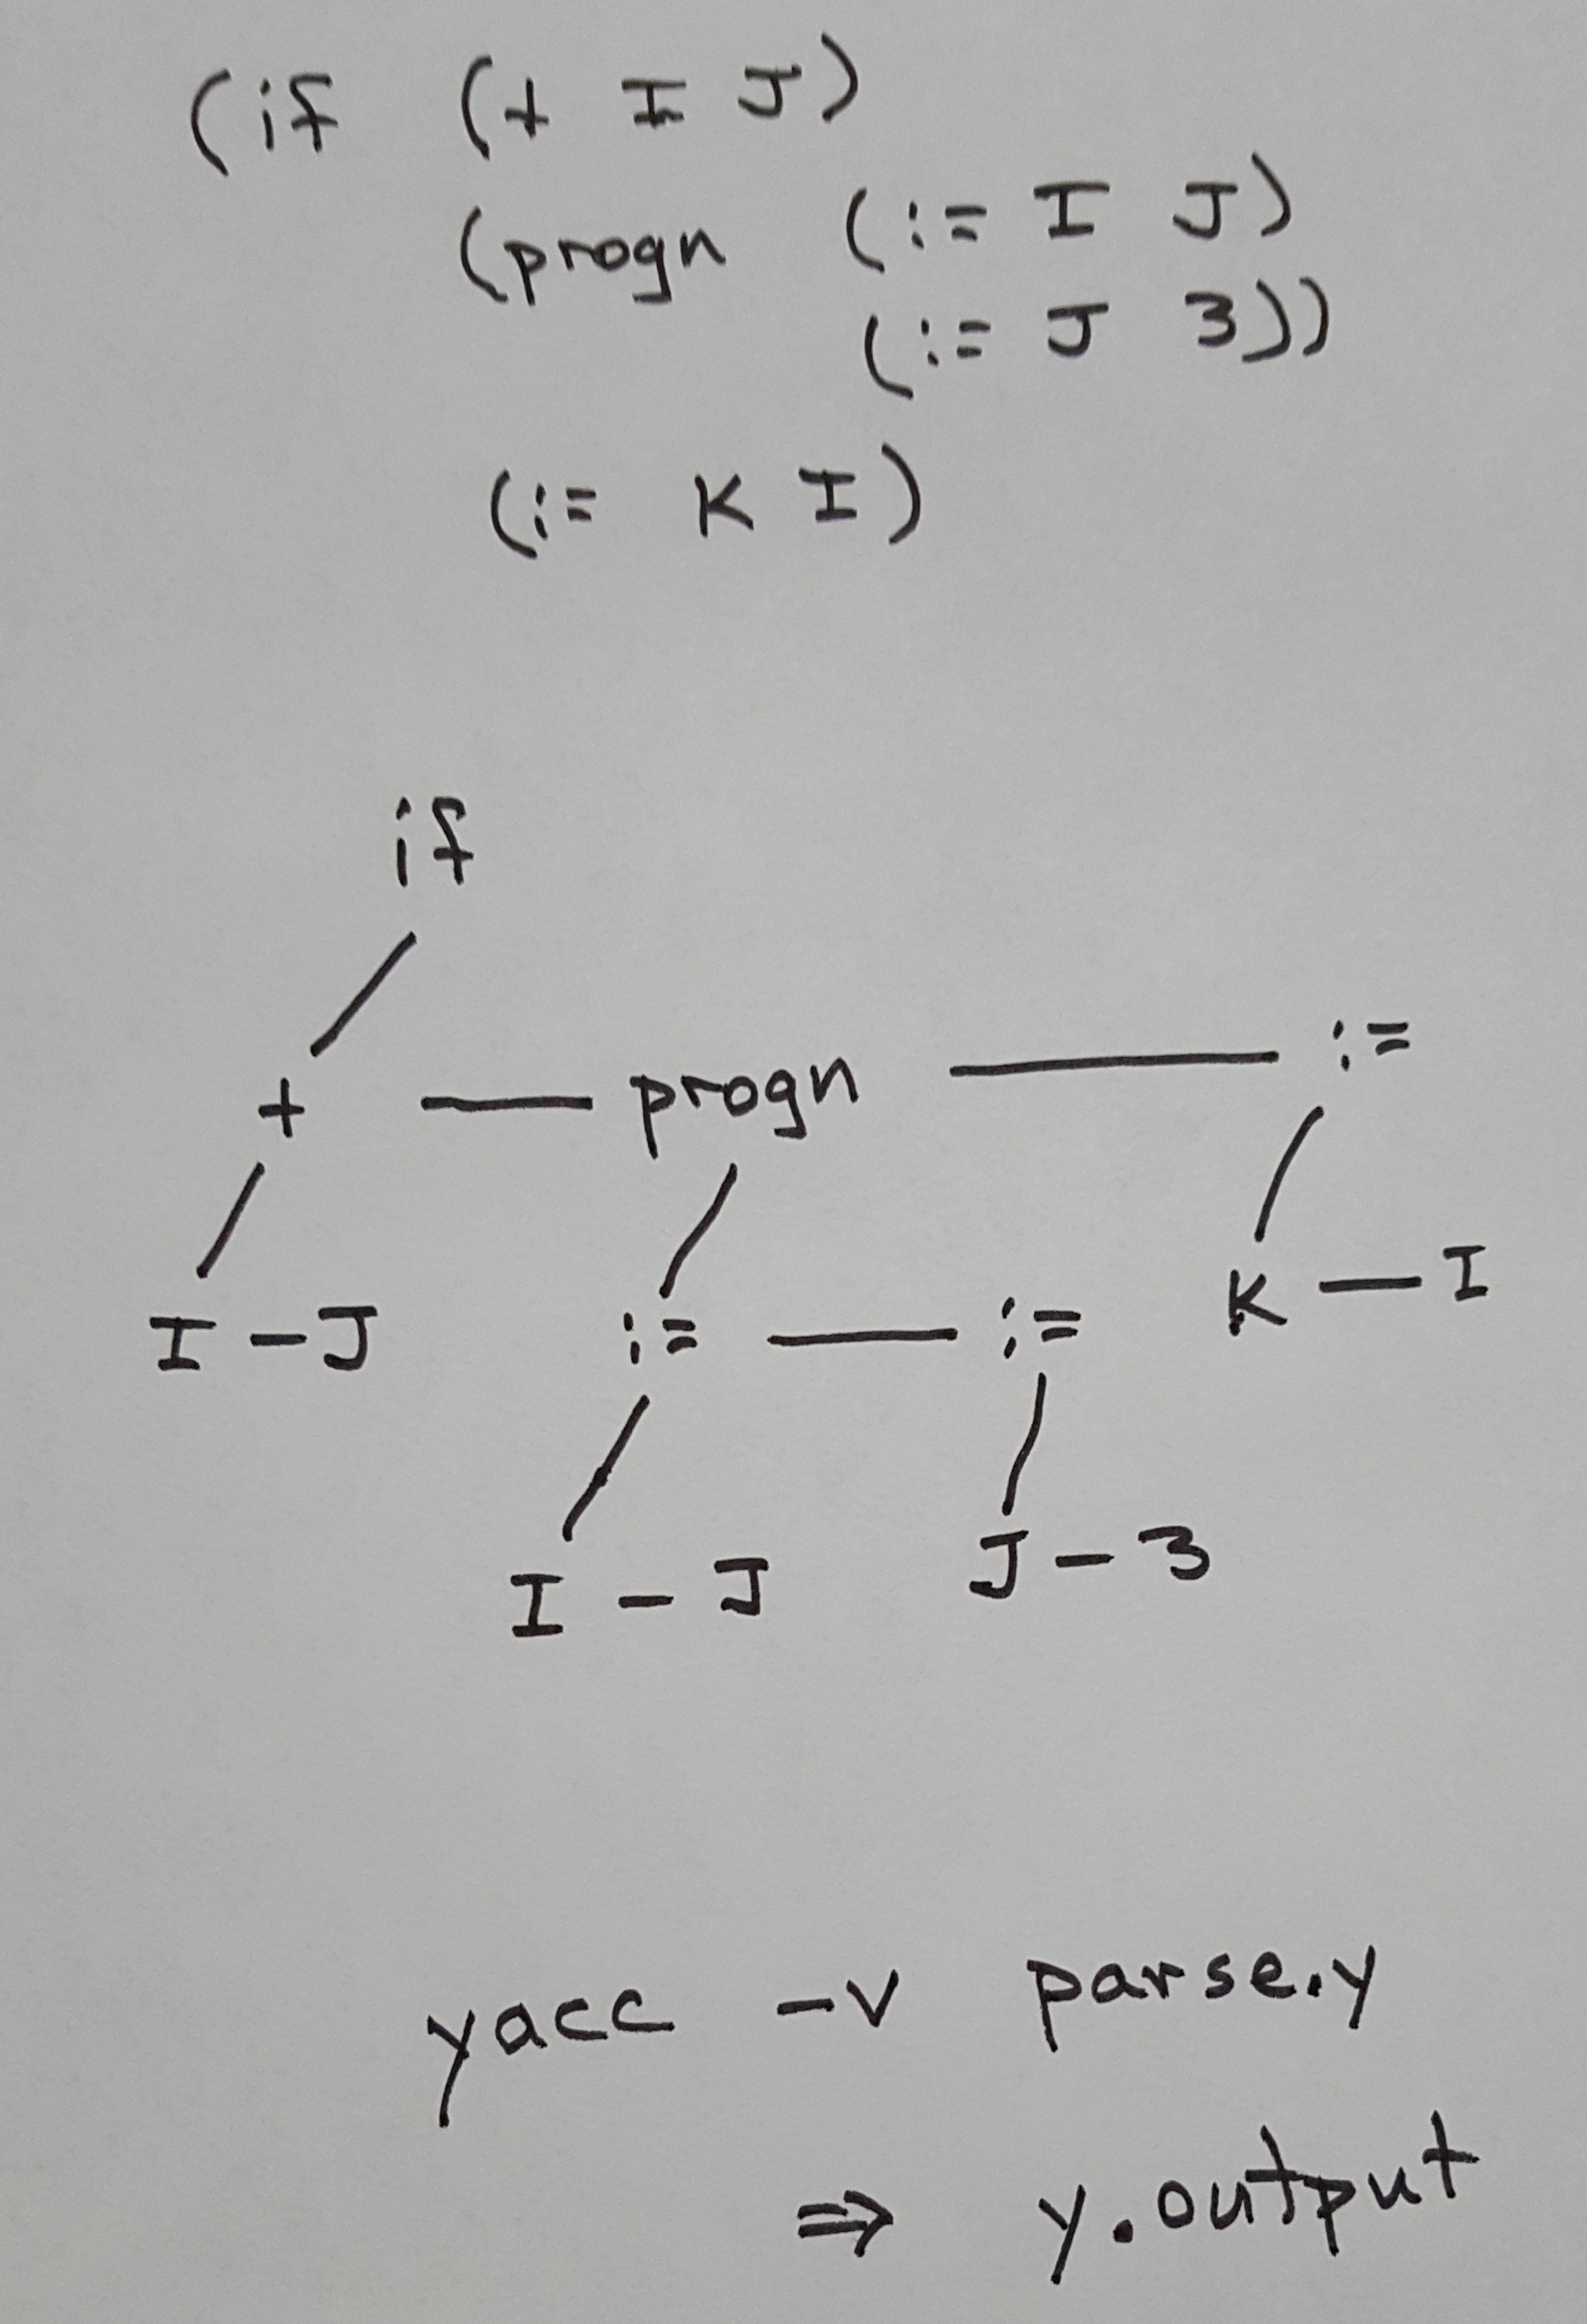 (if (+ I J)
(progn (:= I J)
(:= J 3))
(:= K I)
if
+ — progn — :=
I – J := — := K — I
I – J J – 3
yacc -v parse.y
⇒ y.output